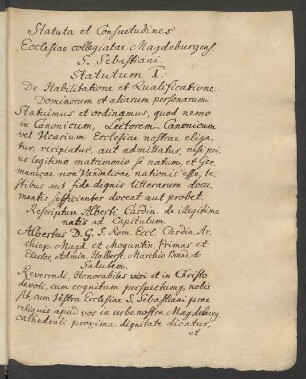 Statuta et Consuetudines
Ecclesiae collegiatae Magdeburgens.
S. Sebastiani.
Statutum I.
De Habilitatione et Qualificatione
Dominorum et aliarum personarum.
Statuimus et ordinamus, quod nemo
in Canonicum, Lectorem, Canonicum
vel Vicarium Ecclesiae nostrae eliga-
tur, recipiatur, aut admittatur, nisi pri-
us legitimo matrimonio se natum, et Ger-
manicae non Vandalicae nationis esse, te-
stibus aut fide dignis litterarum docu-
mentis sufficienter doceat aut probet.
Rescriptum Alberti Cardin. de illegitime
natis ad Capitulum.
Albertus D. G. S. Rom. Eccl. Cardin. Ar-
chiep. Magd. et Moguntin. Primas et
Elector, Admin. Halberst. Marchio Brand. etc.
Salutem.
Reverendi, Honorabiles viri et in Christo
devoti, cum cognitum perspectumq. nobis
sit, cum Vestra Ecclesiae S. Sebastiani prae
reliquis apud vos in urbe nostra Magdeburg.
cathedrali proxima dignitate dicatur,
et